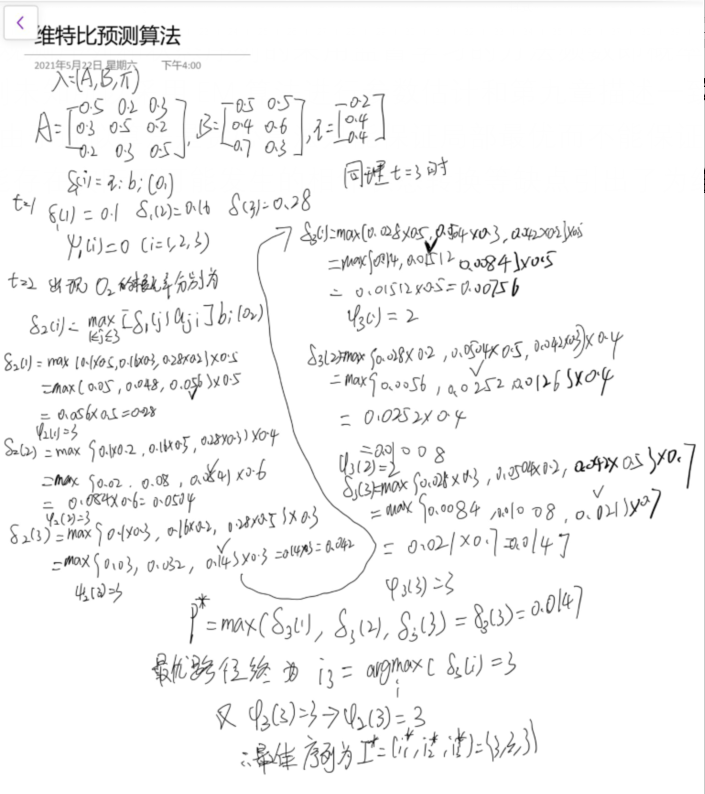 维特比预测算法
2021年5月22日 星期六 下午4:00
λ=(A,B,π)
A=[0.5 0.2 0.3
0.3 0.5 0.2
0.2 0.3 0.5], B=[0.5 0.5
0.4 0.6
0.7 0.3], π=[0.2
0.4
0.4]
δ₁(i)=πᵢbᵢ(o₁)
t=1 δ₁(1)=0.1 δ₁(2)=0.16 δ(3)=0.28
ψ₁(i)=0 (i=1,2,3)
t=2 出现O₂的概率分别为
δ₂(i)=max 1≤j≤3 [δ₁(j)aⱼᵢ]bᵢ(o₂)
δ₂(1)=max{0.1×0.5,0.16×0.3,0.28×0.2}×0.5
=max{0.05,0.048,0.056}×0.5
=0.056×0.5=0.28
ψ₂(1)=3
δ₂(2)=max{0.1×0.2,0.16×0.5,0.28×0.3}×0.4
=max{0.02.0.08,0.084}×0.6
=0.084×0.6=0.0504
ψ₂(2)=3
δ₂(3)=max{0.1×0.3,0.16×0.2,0.28×0.5}×0.3
=max{0.03,0.032,0.14}×0.3=0.14×0.3=0.042
ψ₂(3)=3
同理t=3时
δ₃(1)=max{0.028×0.5,0.0504×0.3,0.042×0.2}×0.5
=max{0.014,0.01512 0.0084}×0.5
=0.01512×0.5=0.00756
ψ₃(1)=2
δ₃(2)=max{0.028×0.2,0.0504×0.5,0.042×0.3}×0.4
=max{0.0056,0.0252 0.0126}×0.4
=0.0252×0.4
=0.01008
ψ₃(2)=2
δ₃(3)=max{0.028×0.3,0.0504×0.2,0.042×0.5}×0.7
=max{0.0084,0.01008,0.021}×0.7
=0.021×0.7=0.0147
ψ₃(3)=3
P*=max(δ₃(1),δ₃(2),δ₃(3)=δ₃(3)=0.0147
最优路径终为i₃=argmax i (δ₃(i)=3
又ψ₃(3)=3→ψ₂(3)=3
∴最佳序列为I*=(i₁*,i₂*,i₃*)=(3,3,3)